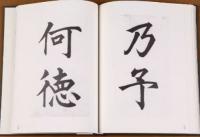 乃予
何徳